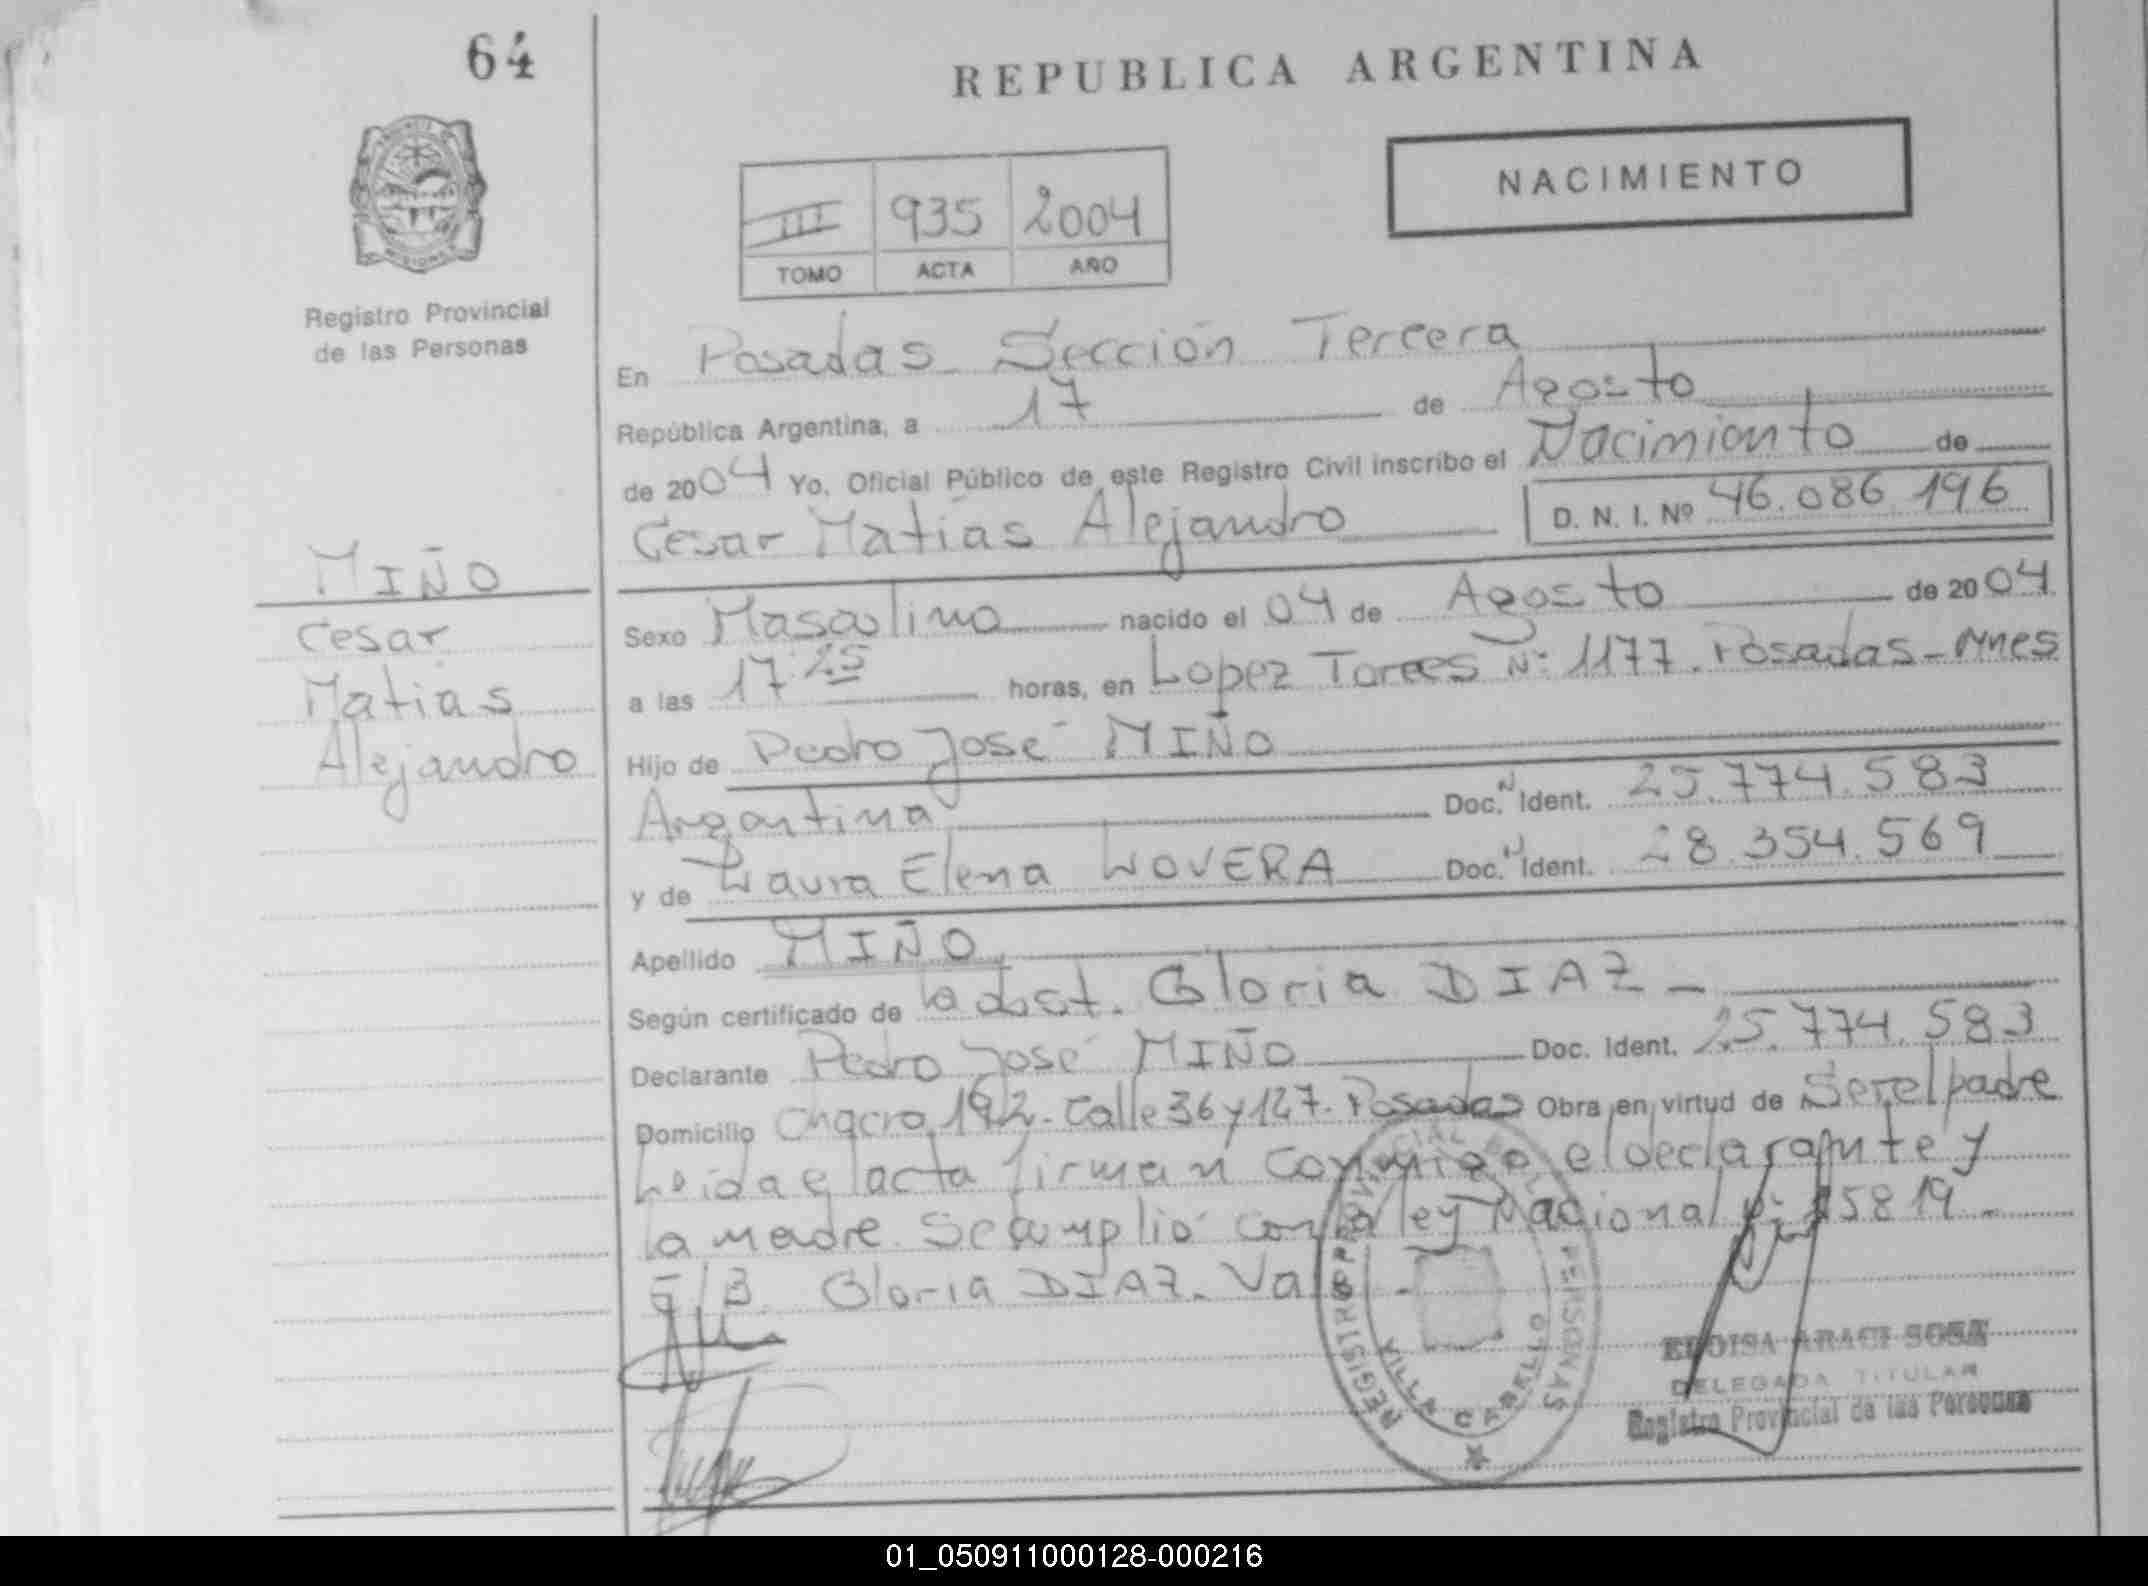 64
REPUBLICA ARGENTINA
NACIMIENTO
III 935 2004
TOMO ACTA AÑO
Registro Provincial
de las Personas
En Posadas Sección Tercera
República Argentina, a 17 de Agosto
de 2004 Yo, Oficial Público de este Registro Civil inscribo el Nacimiento de
Cesar Matías Alejandro D. N. I. Nº 46.086.196
MIÑO
Cesar
Matias
Alejandro
Sexo Masculino nacido el 04 de Agosto de 2004
a las 17:25 horas, en Lopez Torres Nº 1177. Posadas - Mnes
Hijo de Pedro José MIÑO
Argentina Doc. N Ident. 25.774.583
y de Laura Elena LOVERA Doc. N Ident. 28.354.569
Apellido MIÑO
Según certificado de la obst. Gloria DIAZ -
Declarante Pedro José MIÑO Doc. Ident. 25.774.583
Domicilio Chacra 192 - Calle 36 y 127 - Posadas Obra en virtud de Ser el padre
Leida el acta firman conmigo el declarante y
la madre. Se cumplió con la ley Nacional Nº 25819 -
Gloria DIAZ - Vale -
REGISTRO PROVINCIAL DE LAS PERSONAS
VILLA CABELLO
ELOISA ARACI SOSA
DELEGADA TITULAR
Registro Provincial de las Personas
01_050911000128-000216